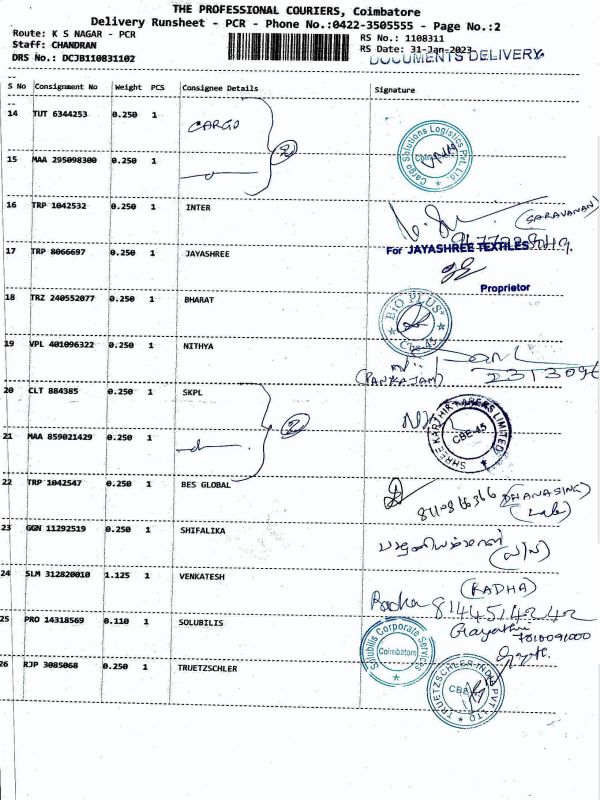 THE PROFESSIONAL COURIERS, Coimbatore
Delivery Runsheet - PCR - Phone No.:0422-3505555 - Page No.:2
Route: K S NAGAR - PCR
RS No.: 1108311
Staff: CHANDRAN
RS Date: 31-Jan-2023
DRS No.: DCJB110831102
DOCUMENTS DELIVERY
S No Consignment No Weight PCS Consignee Details Signature
14 TUT 6344253 0.250 1 CARGO
2
Cargo Solutions Logistics Pvt. Ltd
15 MAA 295098300 0.250 1
16 TRP 1042532 0.250 1 INTER
(SARAVANAN)
17 TRP 8066697 0.250 1 JAYASHREE
For JAYASHREE TEXTILES
Proprietor
18 TRZ 240552077 0.250 1 BHARAT
BIO PLUS
Cbe-45
19 VPL 401096322 0.250 1 NITHYA
(PANKAJAM)
20 CLT 884385 0.250 1 SKPL
2
SHREE KARTHIK PAPERS LIMITED
CBE-45
21 MAA 859021429 0.250 1
22 TRP 1042547 0.250 1 BES GLOBAL
DHANASING
23 GGN 11292519 0.250 1 SHIFALIKA
24 SLM 312820010 1.125 1 VENKATESH
(RADHA)
Radha 8144514242
25 PRO 14318569 0.110 1 SOLUBILIS
Gayathri
7010091000
Solubilis Corporate Services
Coimbatore
26 RJP 3085068 0.250 1 TRUETZSCHLER
TRUETZSCHLER INDIA PVT LTD
CBE